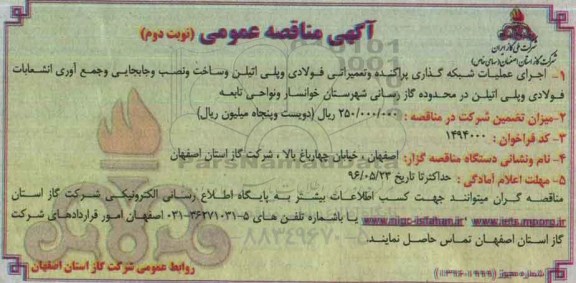 شرکت ملی گاز ایران
شرکت گاز استان اصفهان (سهامی خاص)
آگهی مناقصه عمومی (نوبت دوم)
۱- اجرای عملیات شبکه گذاری پراکنده وتعمیراتی فولادی وپلی اتیلن وساخت ونصب وجابجایی وجمع آوری انشعابات
فولادی وپلی اتیلن در محدوده گاز رسانی شهرستان خوانسار ونواحی تابعه
۲-میزان تضمین شرکت در مناقصه : ۲۵۰/۰۰۰/۰۰۰ ریال (دویست وپنجاه میلیون ریال)
۳- کد فراخوان : ۱۴۹۴۰۰۰
۴- نام ونشانی دستگاه مناقصه گزار: اصفهان ، خیابان چهارباغ بالا ، شرکت گاز استان اصفهان
۵- مهلت اعلام آمادگی : حداکثرتا تاریخ ۹۶/۰۵/۲۳
مناقصه گران میتوانند جهت کسب اطلاعات بیشتر به پایگاه اطلاع رسانی الکترونیکی شرکت گاز استان
www.iets.mporg.ir ، www.nigc-isfahan.ir یا باشماره تلفن های ۵-۳۶۲۷۱۰۳۱-۰۳۱ اصفهان امور قراردادهای شرکت
گاز استان اصفهان تماس حاصل نمایند.
روابط عمومی شرکت گاز استان اصفهان
ParsNamadData
۸۸۳۴۹۶۷۰-۵